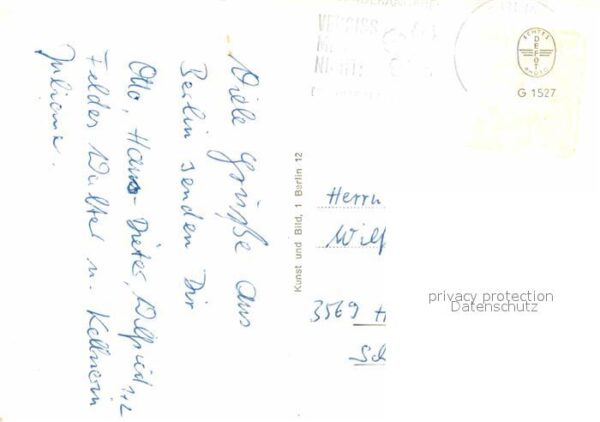 Viele Grüße aus
Berlin senden Dir
Otto, Hans-Dieter, Wilfried 1+2
Felder Walter u. Kellnerin
Juliane.
Kunst und Bild, 1 Berlin 12
VERGISS
NICHT:
ECHTES
DEFOT
PHOTO
G 1527
Herrn
Wilf
3569
Sch
privacy protection
Datenschutz